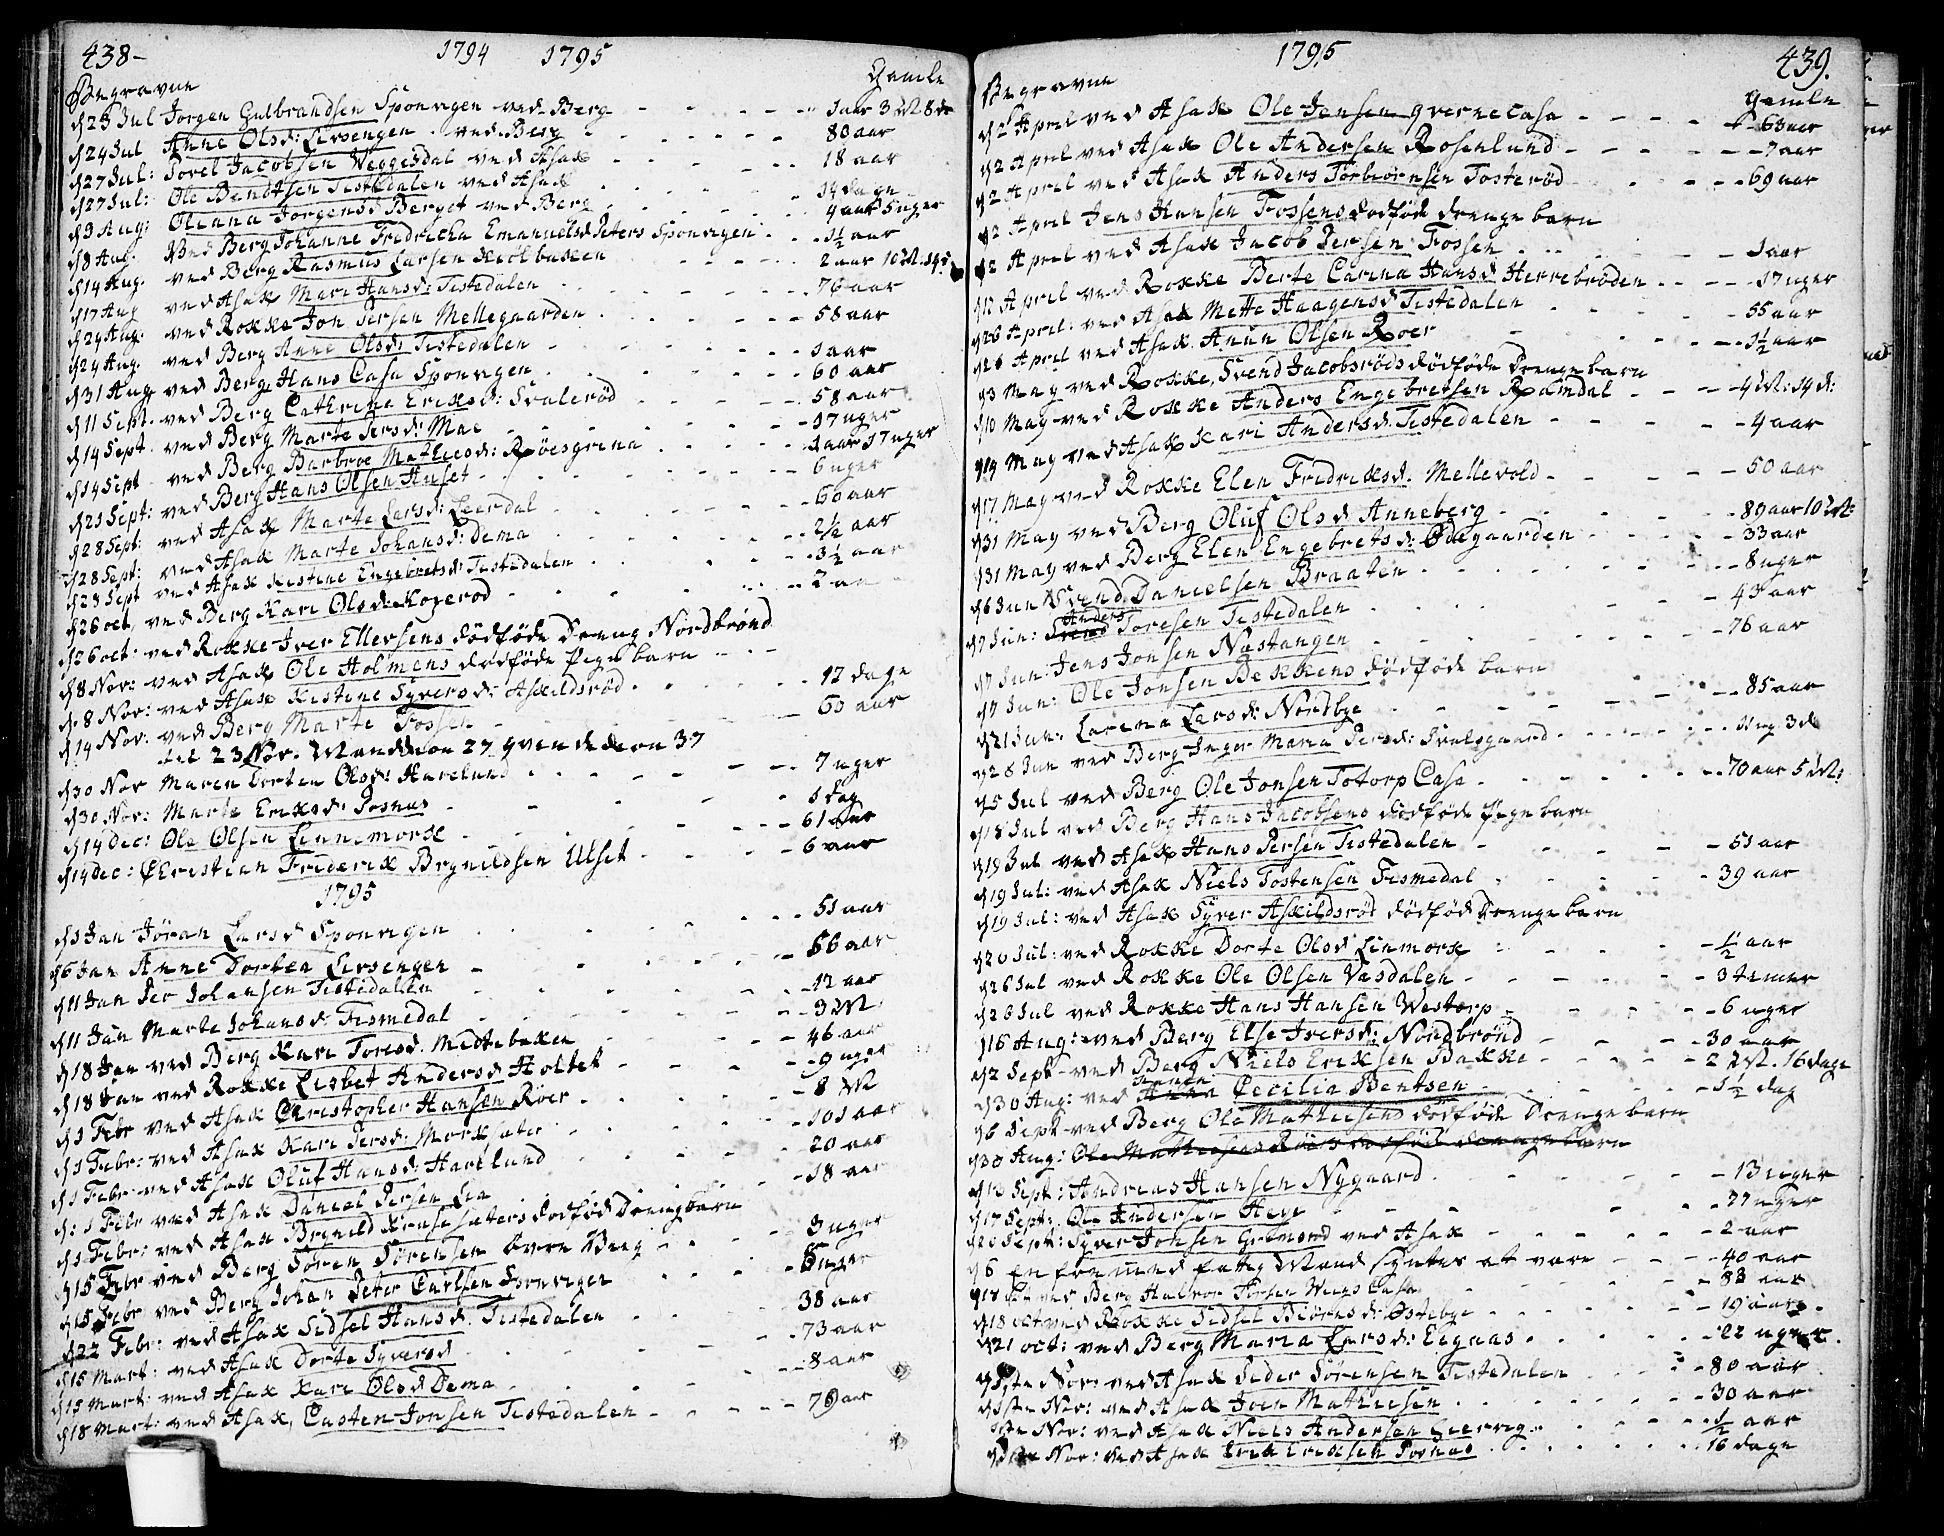 438-
1794 1795
Begravne Gamle
d 23 Jul Jorgen Gulbrandsen Sponvigen ved Berg - - - 1 aar 3 M 8 d
d 24 Jul Anne Olsd: Lersengen ved Berg - - - 80 aar
d 27 Jul: Porel Jacobsen Veggesdal ved Asak - - - 18 aar
d 27 Jul: Ole Bendtsen Tistedalen ved Asak - - - 14 dage
d 3 Aug: Oleana Jorgensd Berget ved Berg - - - 4 aar 5 uger
d 8 Aug. ved Berg Johanne Fredricha Emanuelsd Peters Sponvigen - - 1½ aar
d 14 Aug. ved Berg Rasmus Larsen Kiolbaken - - - 2 aar 10 M. 14 d
d 17 Aug ved Asak Mari Hansd: Tistedalen - - - 76 aar
d 24 Aug: ved Rokke Jon Persen Mellegaarden - - - 58 aar
d 24 Aug. ved Berg Anne Olsd: Tistedalen - - - 1 aar
d 31 Aug ved Berg Hans Casa Sponvigen - - - 60 aar
d 11 Sept. ved Berg Cathrina Eriksd: Svalerød - - - 58 aar
d 14 Sept. ved Berg Marte Persd: Mae - - - 17 uger
d 14 Sept ved Berg Barbroe Mathiesd: Røesgrina - - - 1 aar 17 uger
d 21 Sept: ved Berg Hans Olsen Huset - - - 6 uger
d 28 Sept: ved Asak Marte Larsd: Leerdal - - - 60 aar
d 28 Sept: ved Asak Marte Johansd: Dema - - - 2½ aar
d 28 Sept ved Asak Kistine Engebretsd: Tistedalen - - - 3½ aar
d 26 oct. ved Berg Kari Olsd: Kogerød - - - 2 aar
d 26 oct. ved Rokke Iver Ellersens dödföde Dreng Nordbrønd
d 8 Nov: ved Asak Ole Holmens dødføde Pige barn - - -
d. 8 Nov: ved Asak Kistine Syversd: Askildsrød - - - 12 dage
d 14 Nov: ved Berg Marte Fossen - - - 60 aar
til 23 Nov. Mandkøn 27 qvendekøn 37
d 30 Nov Maren Dorten Olsd: Harelund - - - 7 uger
d 30 Nov: Marte Eriksd: Posnas - - - 1 dag
d 14 dec: Ole Olsen Linnemork - - - 61 aar
d 14 dec: Christian Friderik Brynildsen Ulset - - - 6 aar
1795
d 1 Jan Jøran Larsd Sponvigen - - - 51 aar
d 6 Jan Anne Dorten Lersengen - - - 66 aar
d 11 Jan Per Johansen Tistedallen - - - 12 aar
d 11 Jan Marte Johansd: Fismedal - - - 3 M
d 18 Jan ved Berg Kari Toresd. Midtebaken - - - 46 aar
d 18 Jan ved Rokke Lisbet Andersd Holtet - - - 9 uger
d 1 Febr ved Asak Christopher Hansen Röer - - - 8 M
d 1 Febr: ved Asak Kari Persd: Morksater - - - 101 aar
d 1 Febr ved Asak Oluf Hansd: Harelund - - - 20 aar
d: 1 Febr ved Asak Daniel Persen Lia - - - 18 aar
d 1 Febr: ved Asak Brynild Krusesæters dödföd Drengbarn
d 15 Febr ved Berg Sören Sörensen övre Berg - - - 3 uger
d 15 Febr ved Berg Johan Peter Carlsen Sponvigen - - - 6 uger
d 22 Febr: ved Asak Sidsel Hansd. Tistedalen - - - 38 aar
d 15 Mart: ved Asak Dorte Syversd - - - 73 aar
d 15 Mart: ved Asak Kari Olsd Dema - - - 8 aar
d 18 Mart: ved Asak, Casten Jonsen Tistedalen - - - 76 aar
1795 439.
Begravne Gamle
d 2 April ved Asak Ole Jensen qvernecasa - - - 63 aar
d 2 April ved Asak Ole Andersen Rosenlund - - - 7 aar
d 2 April ved Asak Anders Torbiørnsen Tosterød - - - 69 aar
d 2 April Jens Hansen Fossens dödföde Drenge barn
d 2 April ved Asak Jacob Persen Fossen - - - 1 aar
d 12 April ved Rokke Berte Carina Hansd Herrebrøden - - - 17 uger
d 26 April: ved Asak Mette Haagensd Tistedalen - - - 55 aar
d 26 April ved Asak. Anun Olsen Roer - - - 1½ aar
d 3 May ved Rokke, Svend Jacobsrøds dödföde Drenge barn
d 10 May ved Rokke Anders Engebretsen Ramdal - - - 4 M: 14 d:
d 14 May ved Asak Kari Andersd: Tistedalen - - - 4 aar
d 17 May ved Rokke Elen Fredriksd. Mellevold - - - 50 aar
d 31 May ved Berg Oluf Olsd Anneberg - - - 80 aar 10 M:
d 31 May ved Berg Elen Engebretsd: Ødegaarden - - - 33 aar
d 6 Jun Svend Danielsen Braaten - - - 8 uger
d 7 Jun: Anders Toresen Tistedalen - - - 43 aar
d 7 Jun: Jens Jonsen Næstangen - - - 76 aar
d 7 Jun: Ole Jonsen Bekkens dödföde barn
d 21 Jun: Larena Larsd: Nordbye - - - 85 aar
d 28 Jun ved Berg Inger Maria Persd: Svalsgaard - - - 1 ug 3 d
d 5 Jul ved Berg Ole Jonsen Totorp Casa - - - 70 aar 5 M:
d 18 Jul ved Berg Hans Jacobsens dödföde Pige barn
d 19 Jul ved Asak Hans Persen Tistedalen - - - 51 aar
d 19 Jul: ved Asak Niels Tostensen Fismedal - - - 39 aar
d 19 Jul: ved Asak Syver Askildsrød dödföd Drengebarn
d 20 Jul: ved Rokke Dorte Olsd Linmork - - - ½ aar
d 26 Jul ved Rokke Ole Olsen Vasdalen - - - 3 timer
d 26 Jul ved Rokke Hans Hansen Westorp - - - 6 uger
d 16 Aug: ved Berg Else Iversd: Nordbrønd - - - 30 aar
d 2 Sept ved Berg Niels Eriksen Bakke - - - 2 M. 16 dage
d 30 Aug: ved Cecilia Bentsen - - - 1½ dag
d 6 Sept ved Berg Ole Mathiesens dödföde Drenge barn
d 30 Aug: Ole Mathiesens dödföd drenge barn
d 13 Sept: Andreas Hansen Nygaard - - - 13 uger
d 17 Sept: Ole Andersen Hege - - - 27 uger
d 20 Sept: Syver Jonsen Grimsrød ved Asak - - - 2 aar
d 6 En fremmed fattig Mand syntes at vare - - - 40 aar
d 18 oct ved Berg Halvor Torsen Wiigs Casa - - - 88 aar
d 18 oct ved Rokke Sidsel Biörnsd: Østebye - - - 19 aar
d 21 oct: ved Berg Maria Larsd: Eegaas - - - 22 uger
d 1ste Nov: ved Asak Peder Sörensen Tistedalen - - - 80 aar
d 1ste Nov: ved Asak Joen Mathiesen - - - 30 aar
1ste Nov: ved Asak Niels Andersen Leervig - - - ½ aar
d 1ste Nov: ved Asak Erik Eriksen Posnas - - - 16 dage